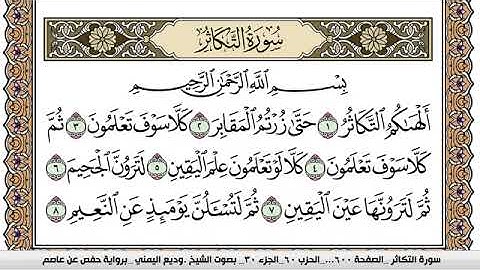 سُورَةُ التَّكَاثُرِ
بِسْمِ اللَّهِ الرَّحْمَٰنِ الرَّحِيمِ
أَلْهَىٰكُمُ التَّكَاثُرُ ١ حَتَّىٰ زُرْتُمُ الْمَقَابِرَ ٢ كَلَّا سَوْفَ تَعْلَمُونَ ٣ ثُمَّ
كَلَّا سَوْفَ تَعْلَمُونَ ٤ كَلَّا لَوْ تَعْلَمُونَ عِلْمَ الْيَقِينِ ٥ لَتَرَوُنَّ الْجَحِيمَ ٦
ثُمَّ لَتَرَوُنَّهَا عَيْنَ الْيَقِينِ ٧ ثُمَّ لَتُسْـَٔلُنَّ يَوْمَئِذٍ عَنِ النَّعِيمِ ٨
سورة التكاثر _الصفحة ٦٠٠...الحزب ٦٠_الجزء ٣٠_ بصوت الشيخ .وديع اليمني _برواية حفص عن عاصم